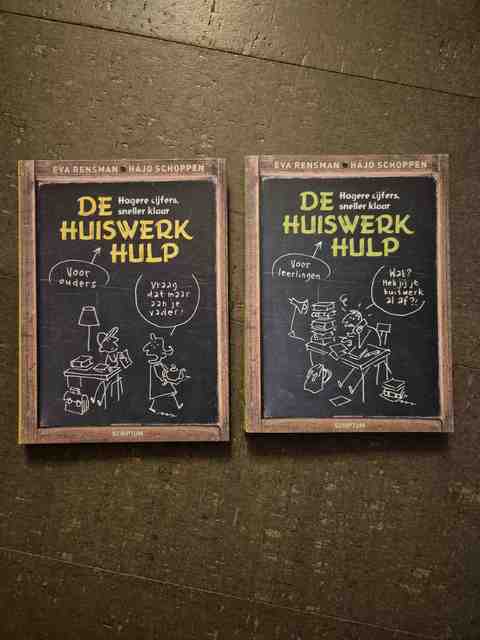 EVA RENSMAN HAJO SCHOPPEN
DE
Hogere cijfers,
sneller klaar
HUISWERK
HULP
Voor
ouders
Vraag
dat maar
aan je
vader!
SCRIPTUM
EVA RENSMAN HAJO SCHOPPEN
DE
Hogere cijfers,
sneller klaar
HUISWERK
HULP
Voor
leerlingen
Wat?
Heb jij je
huiswerk
al af?!
SCRIPTUM